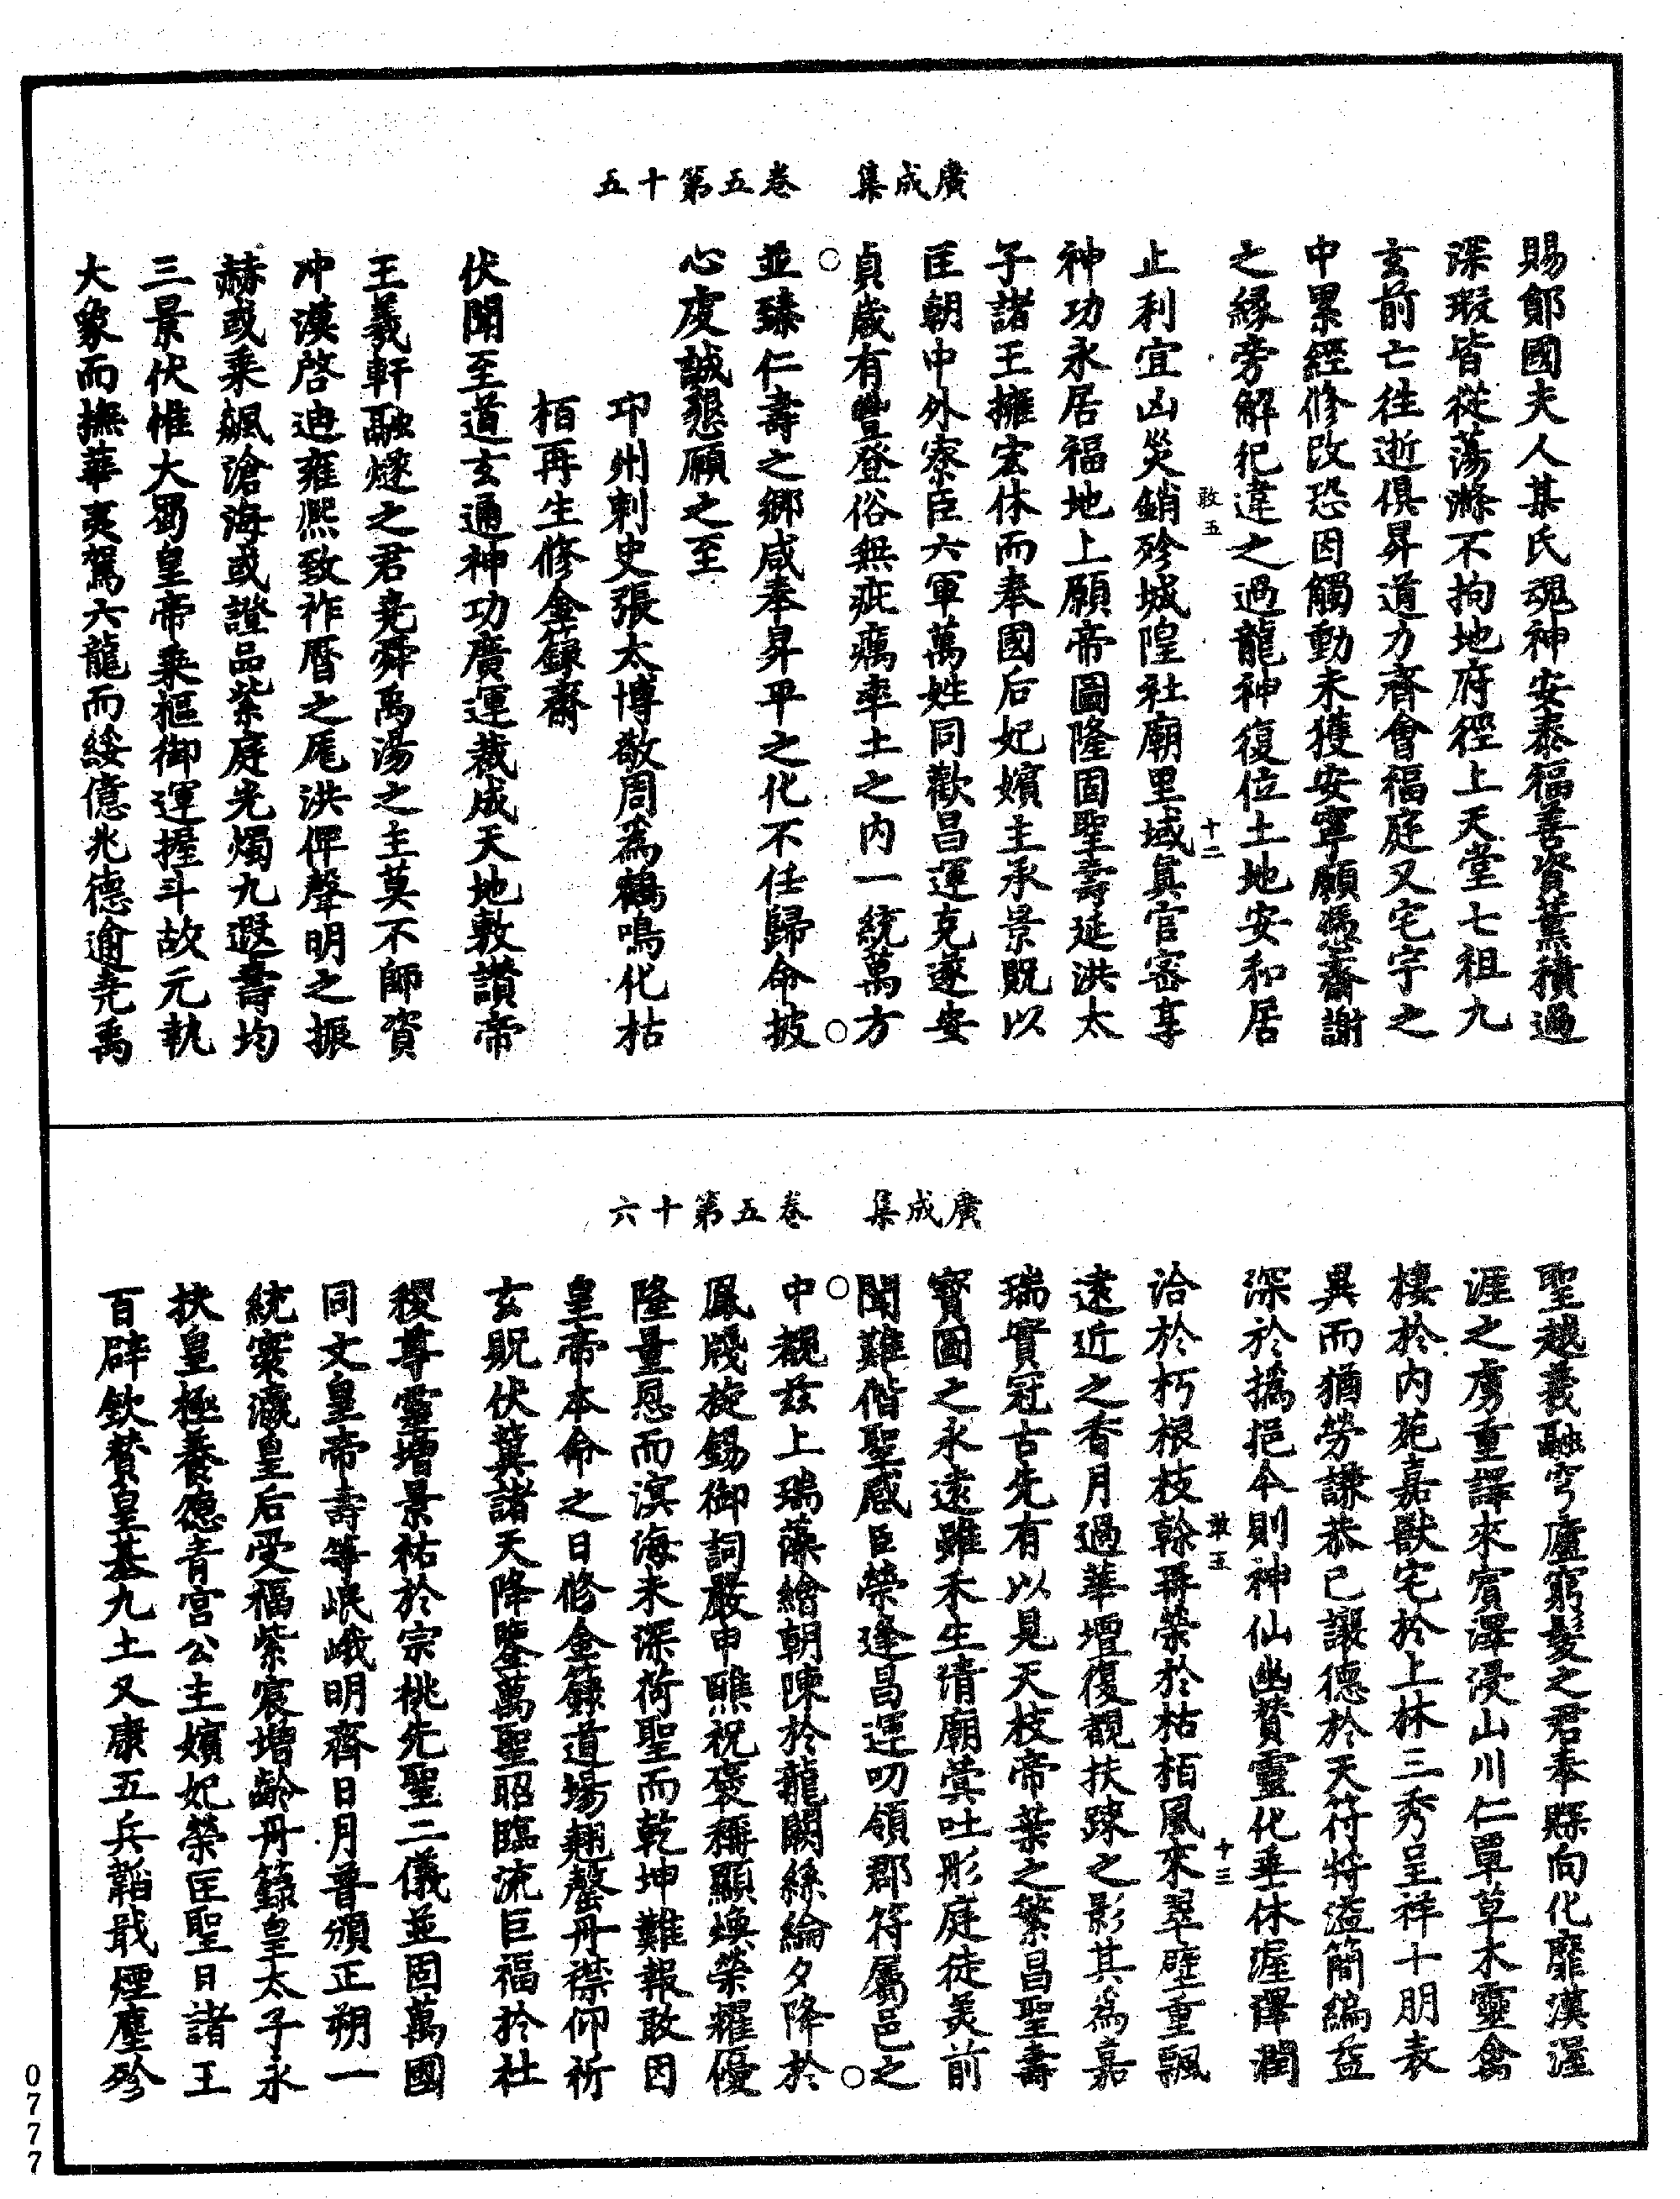 廣成集　卷五第十五
賜鄭國夫人某氏魂神安泰福善資薰積過
深瑕皆從蕩滌不拘地府徑上天堂七祖九
玄前亡往逝俱昇道力齊會福庭又宅宇之
中累經修改恐因觸動未獲安寧願憑齋謝
之緣旁解犯違之過龍神復位土地安和居
敢五　十二
止利宜凶災銷殄城隍社廟里域眞官密享
神功永居福地上願帝圖隆固聖壽延洪太
子諸王擁宏休而奉國后妃嬪主承景貺以
匡朝中外寮臣六軍萬姓同歡昌運克遂安
貞歲有豐登俗無疵癘率土之內一統萬方
並臻仁壽之鄉咸奉昇平之化不任歸命披
心虔誠懇願之至
卭州刺史張太博敬周爲鶴鳴化枯
栢再生修金籙齋
伏聞至道玄通神功廣運裁成天地敷讚帝
王羲軒融燧之君堯舜禹湯之主莫不師資
冲漠啓迪雍熙致祚曆之厖洪俾聲明之振
赫或乘飆滄海或證品紫庭光燭九遐壽均
三景伏惟大蜀皇帝乘樞御運握斗故元執
大象而撫華夷駕六龍而綏億兆德逾堯禹
廣成集　卷五第十六
聖越羲融穹廬窮髮之君奉縣向化龐漠渥
涯之虜重譯來賓澤浸山川仁覃草木靈禽
棲於內苑嘉獸宅於上林三秀呈祥十朋表
異而猶勞謙恭己讓德於天符將溢簡編益
深於撝挹今則神仙幽贊靈化垂休渥澤潤
敢五　十三
洽於朽根枝幹再榮於枯栢風來翠壁重飄
遠近之香月過華壇復覩扶踈之影其爲嘉
瑞實冠古先有以見天枝帝葉之繁昌聖壽
寶圖之永遠雖禾生清廟蓂吐彤庭徒美前
聞難偕聖感臣榮逢昌運叨領郡符屬邑之
中覩茲上瑞藻繪朝陳於龍闕絲綸夕降於
鳳牋旋錫御詞嚴申醮祝褒稱顯煥榮耀優
隆量恩而溟海未深荷聖而乾坤難報敢因
皇帝本命之日修金籙道場翹罄丹襟仰祈
玄貺伏冀諸天降鑒萬聖昭臨流巨福於社
稷尊靈增景祜於宗祧先聖二儀並固萬國
同文皇帝壽等岷峨明齊日月普頒正朔一
統寰瀛皇后受福紫宸增齡丹籙皇太子永
扶皇極養德青宮公主嬪妃榮匡聖日諸王
百辟欽贊皇基九土又康五兵韜戢煙塵殄
0777